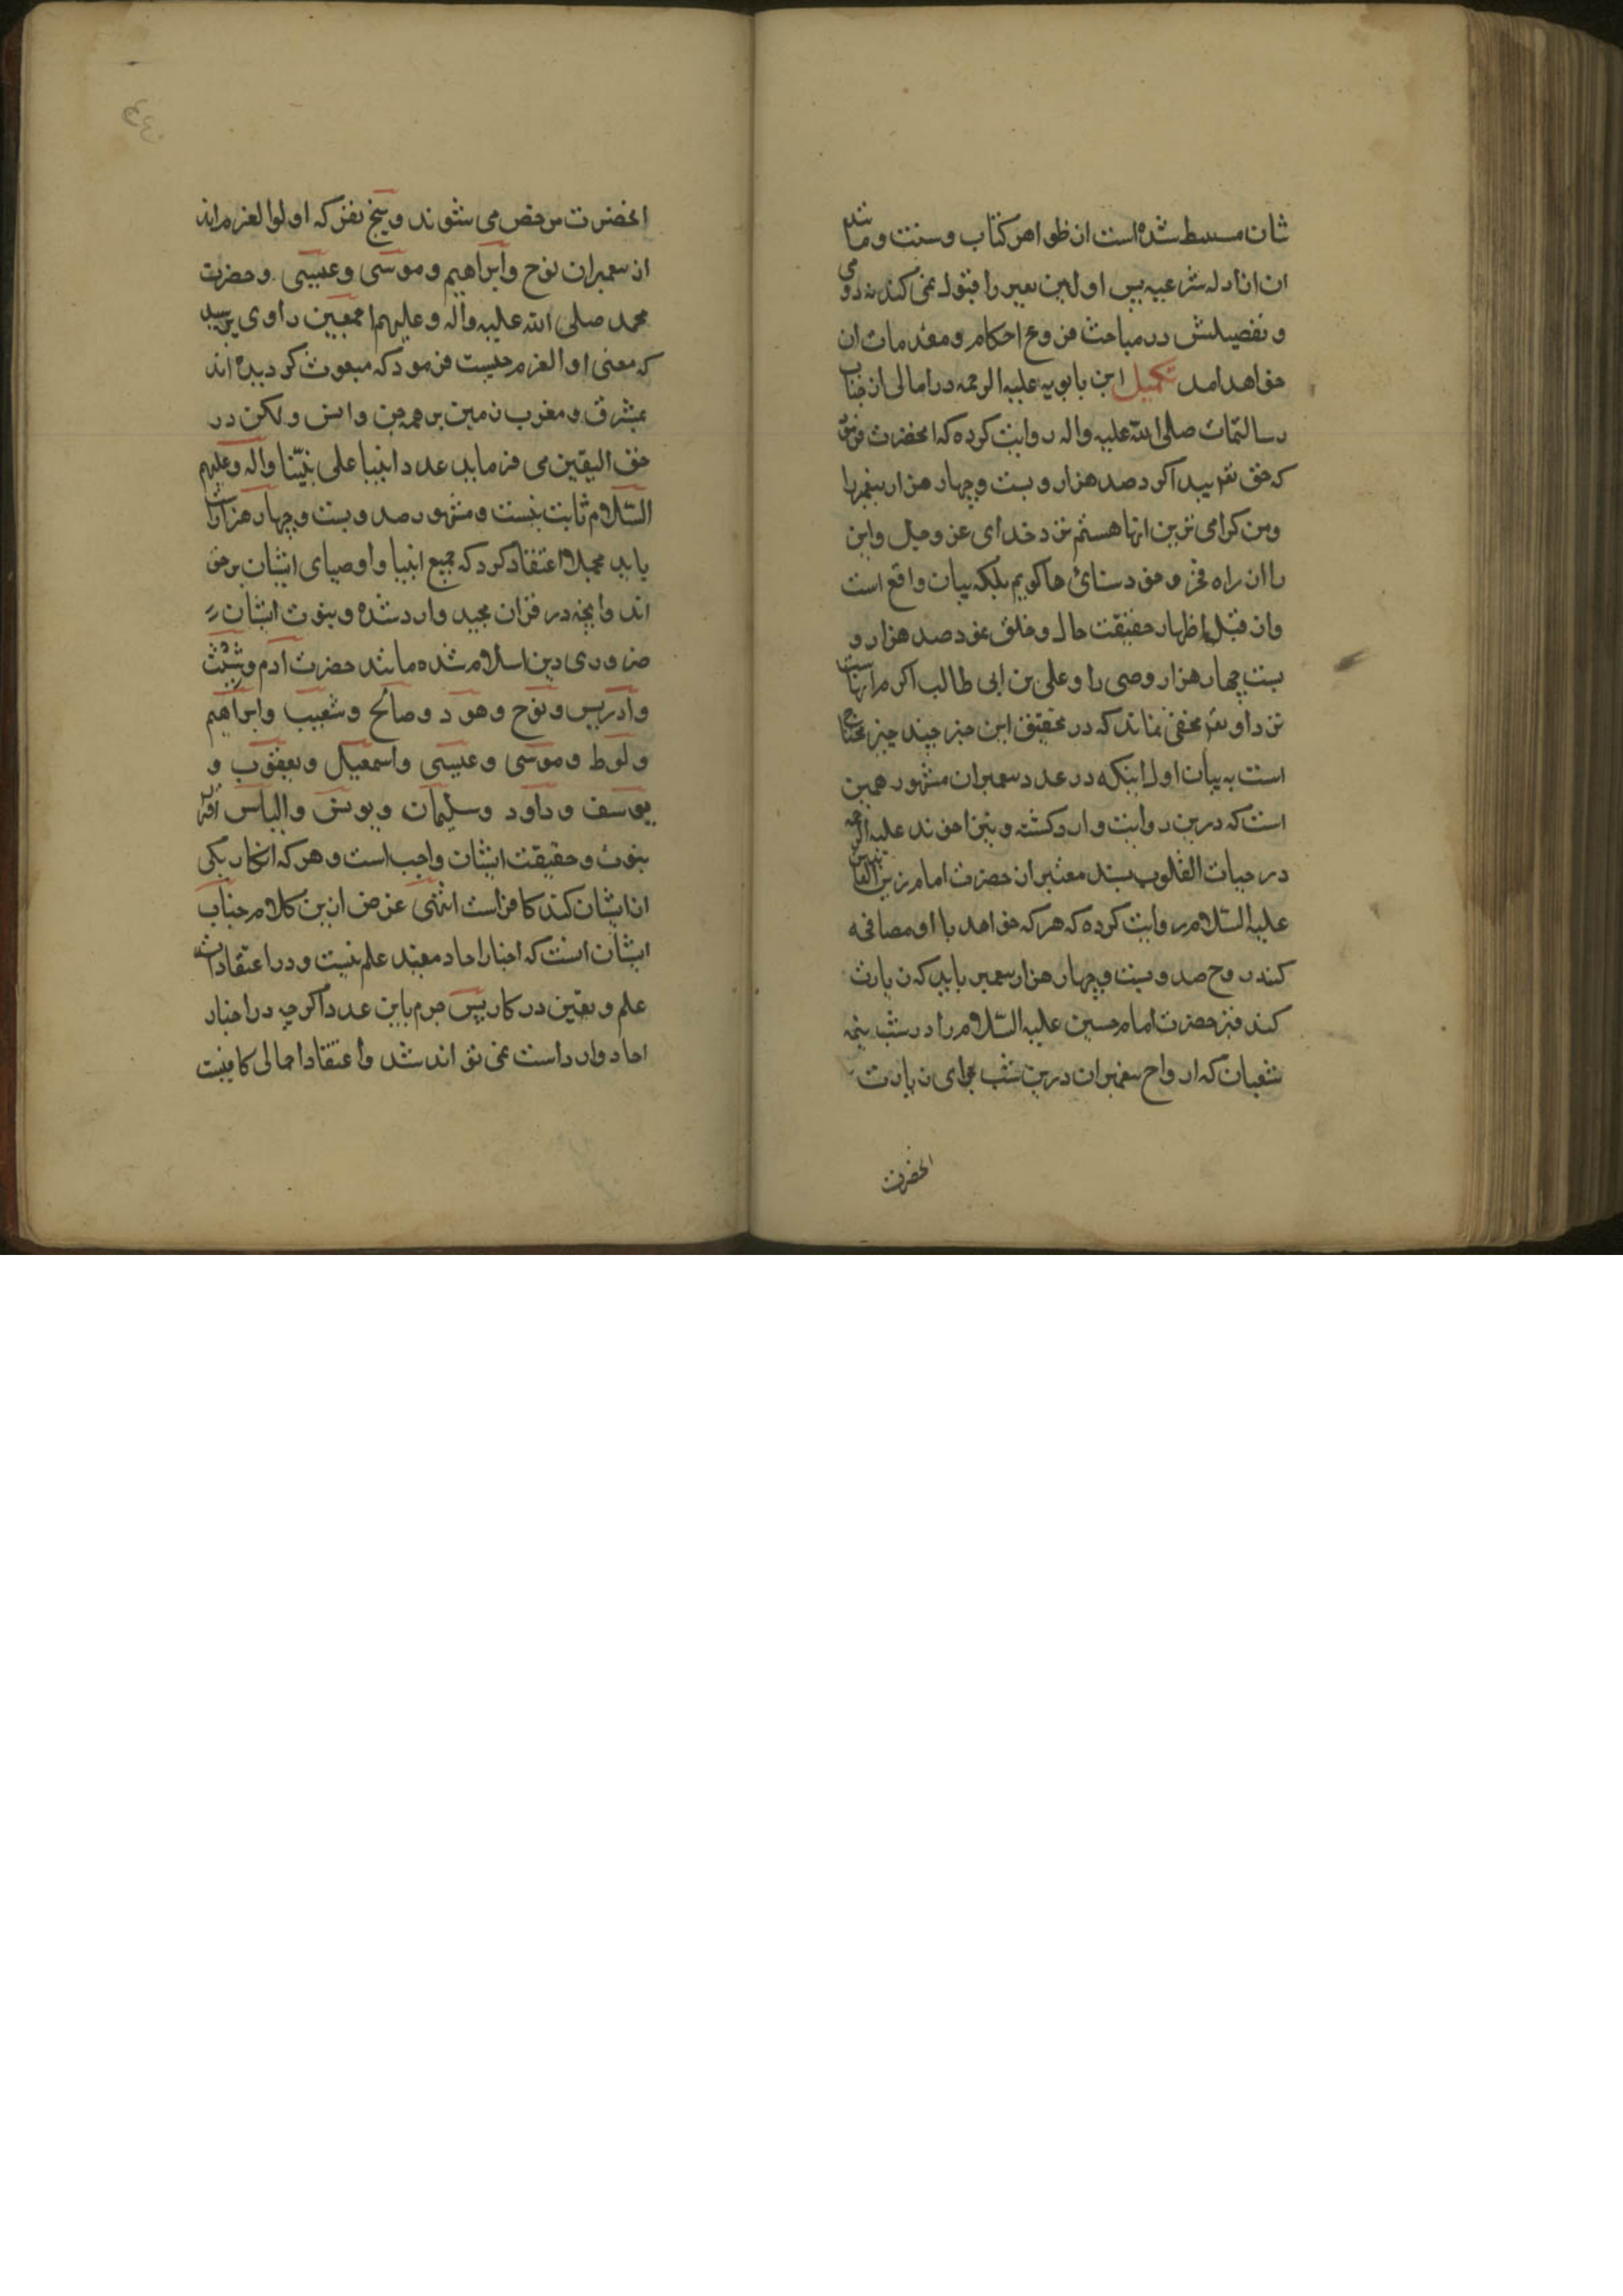 شان مسلط شده است از ظواهر کتاب و سنت و مانند
ان از ادله شرعیه پس اولین تغییر را قبول نمی کند نه دومی
و تفصیلش در مباحث فروع احکام و مقدمات ان
خواهد امد تکمیل ابن بابویه علیه الرحمه در امالی از جناب
رسالتمآب صلی الله علیه واله روایت کرده که انحضرت فرمود
که حق تعم پیدا کرد صد هزار و بست و چهار هزار پیغمبر را
ومن کرامی ترین انها هستم نزد خدای عز وجل واین
را از راه فخر و خود ستائی ها کویم بلکه بیان واقع است
واز قبیل اظهار حقیقت حال و خلق نمود صد هزار و
بست چهار هزار وصی را و علی بن ابی طالب اکرم انهاست
نزد او تعم مخفی نماند که در تحقیق این خبر چند چیز محتاج
است به بیان اول اینکه در عدد پیغمبران مشهور همین
است که درین روایت وارد کشته و نیز اخوند علیه الرحمه
در حیات القلوب بسند معتبر از حضرت امام زین العابدین
علیه السلام روایت کرده که هر که خواهد با او مصافحه
کند روح صد و بیست و چهار هزار پیغمبر باید که زیارت
کند قبر حضرت امام حسین علیه السلام را در شب نیمه
شعبان که ارواح پیغمبران درین شب برای زیارت
انحضرت
انحضرت مرخص می شوند و پنج نفر که اولوالعزم اند
از پیغمبران نوح وابراهیم و موسی و عیسی و حضرت
محمد صلی الله علیه واله وعلیهم اجمعین راوی پرسید
که معنی اوالعزم چیست فرمود که مبعوث کردیده اند
بمشرق و مغرب زمین بر همه جن وانس و لکن در
حق الیقین می فرماید عدد انبیا علی نبیّنا واله وعلیهم
السّلام ثابت نیست و مشهور صد و بست و چهار هزار است
باید مجملا اعتقاد کرد که جمیع انبیا واوصیای ایشان بر حق
اند وانچه در قران مجید وارد شده و نبوت ایشان
ضروری دین اسلام شده مانند حضرت آدم و شیث
وادریس و نوح و هود و صالح و شعیب وابراهیم
و لوط و موسی و عیسی واسمعیل و یعقوب و
یوسف و داود و سلیمان و یونس والیاس اقرار
بنبوت و حقیقت ایشان واجب است و هر که انکار یکی
از ایشان کند کافر است انتهی غرض ازین کلام جناب
ایشان انست که اخبار احاد مفید علم نیست و در اعتقادات
علم و یقین در کار پس جزم باین عدد اکرچه در اخبار
احاد وارد است نمی تواند شد واعتقاد اجمالی کافیست